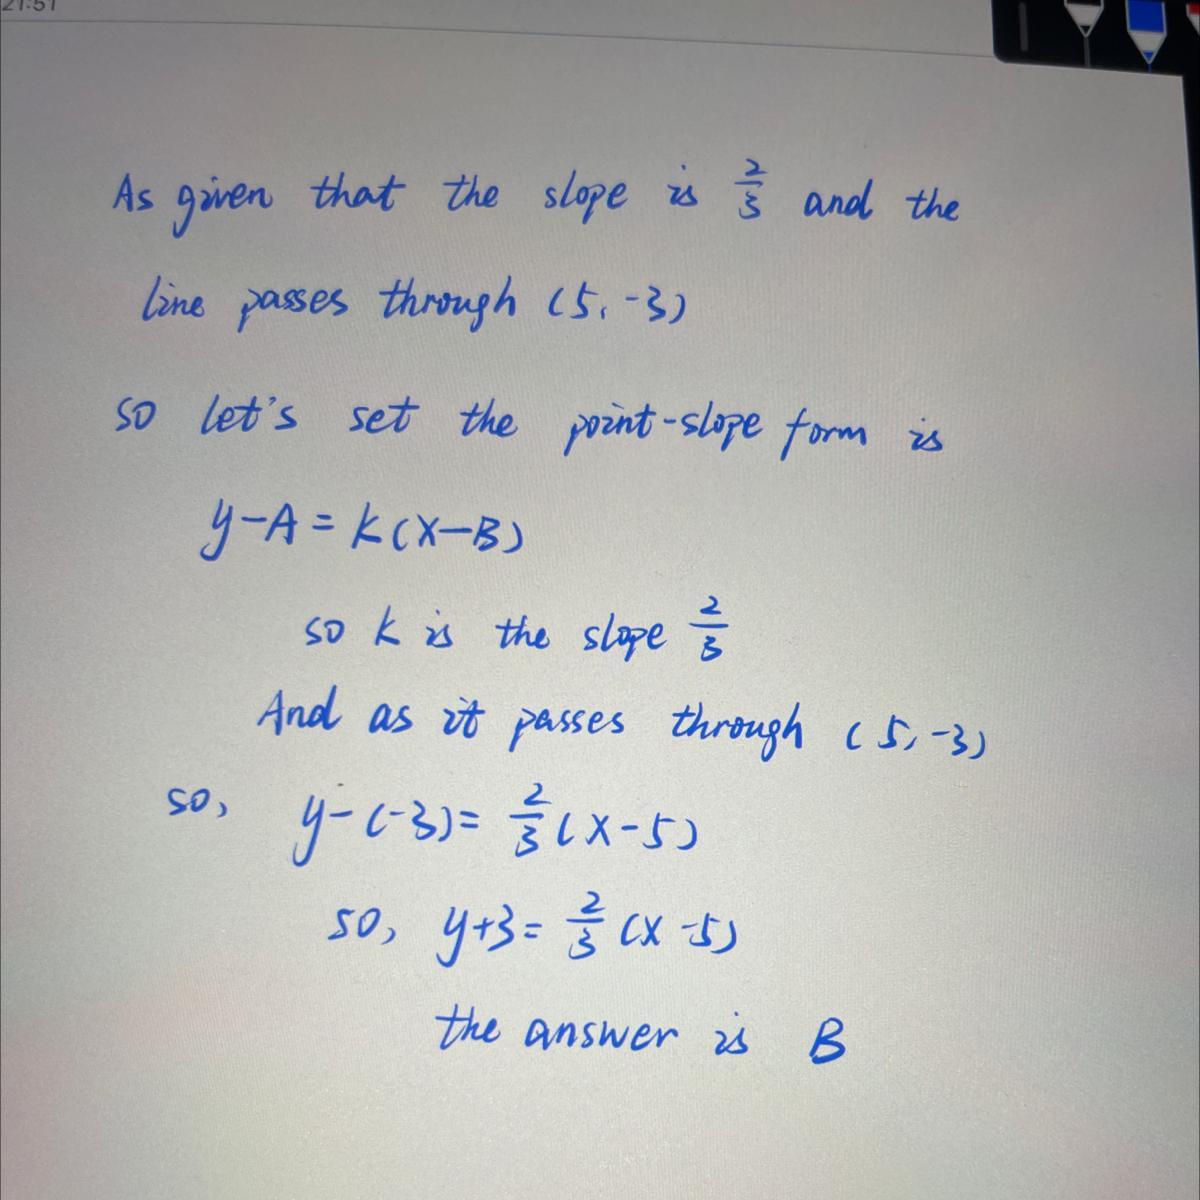 21:51
As given that the slope is 2/3 and the
line passes through (5, -3)
so let's set the point-slope form is
y-A = k(x-B)
so k is the slope 2/3
And as it passes through (5, -3)
so, y-(-3) = 2/3 (x-5)
so, y+3 = 2/3 (x-5)
the answer is B